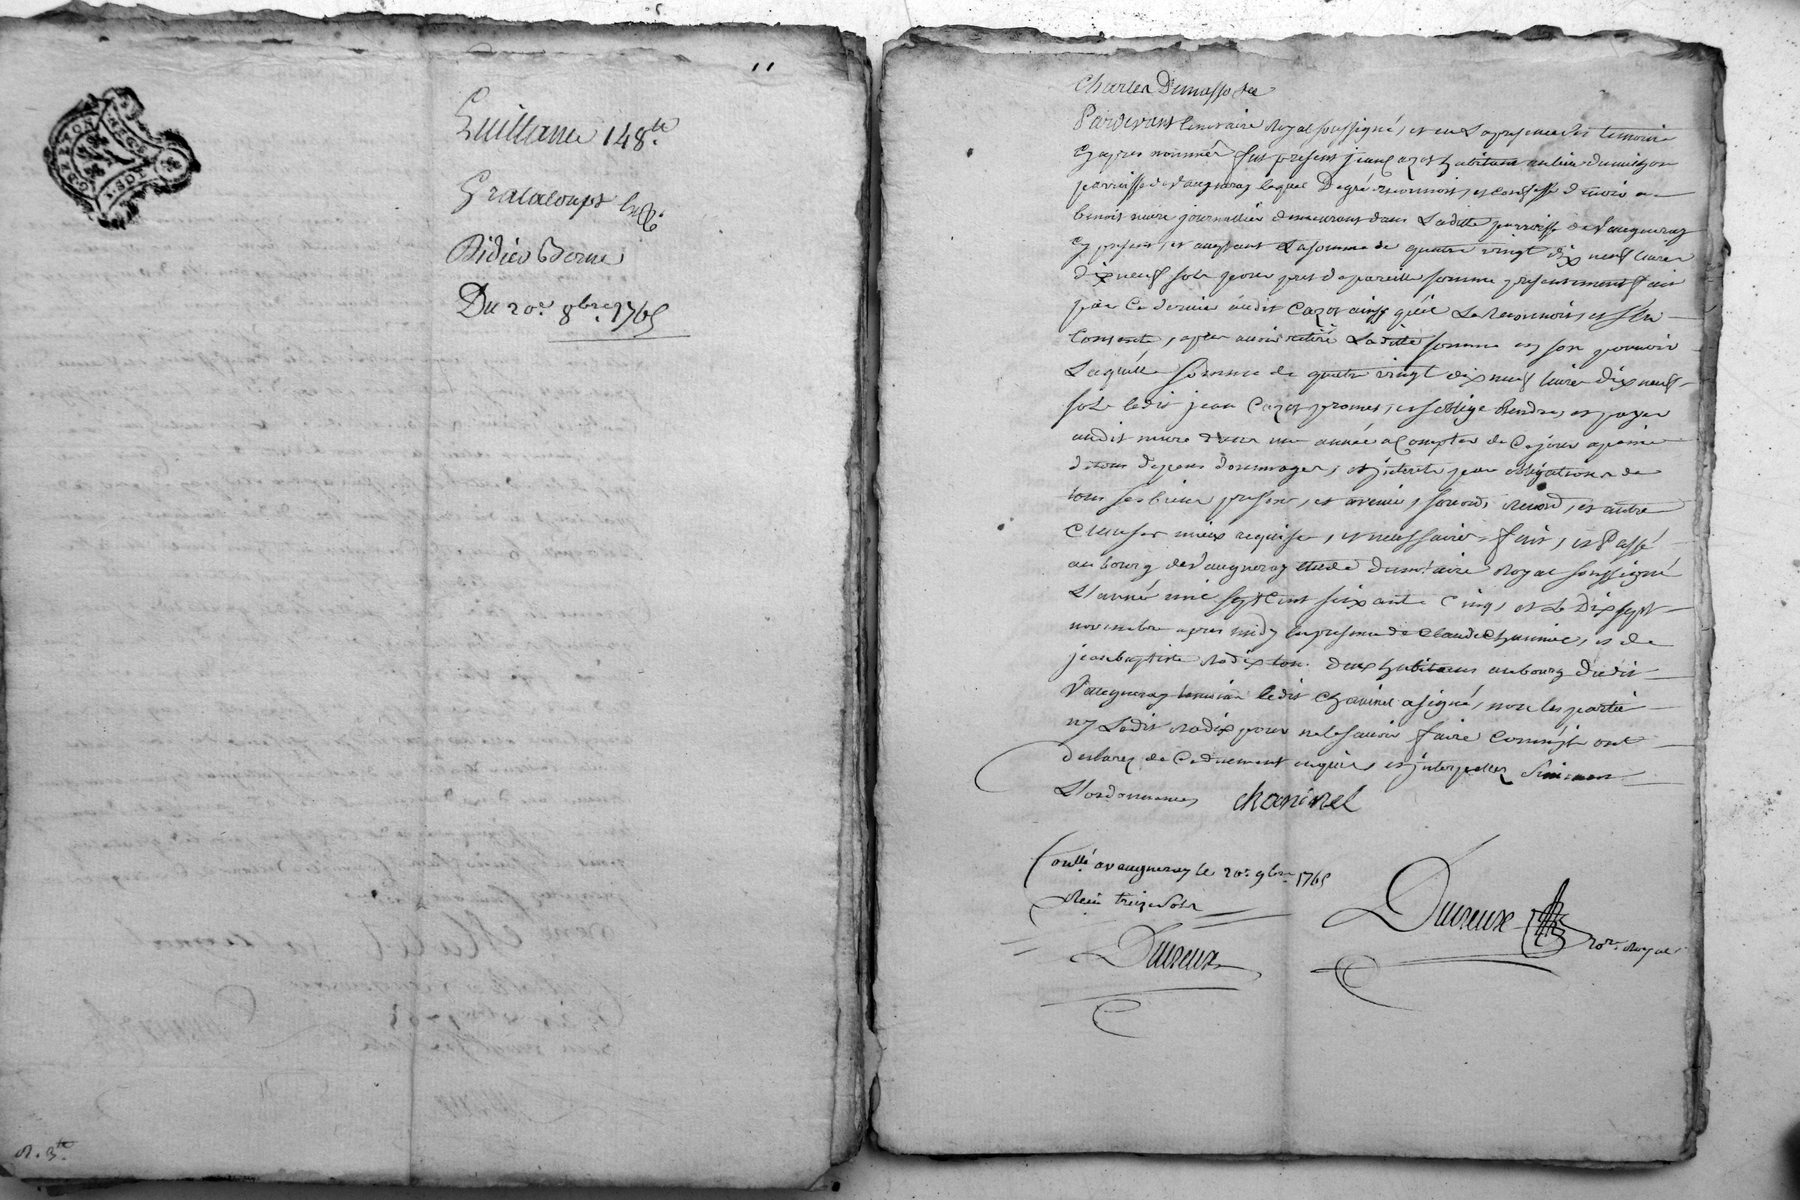 11
148
Didier Borne
Du 20e 8bre 1765
R. 3
Charles Dumasso
Pardevant le notaire Royal soussigné, et en La presence des temoins
Cy apres nommés fut present jean Cazot habitant au lieu
parroisse de vaugneray lequel Degré reconnoit, et confesse devoir a
benoit mure journallier demeurant dans Laditte parroisse de Vaugneray
Cy present, et aceptant La somme de quatre vingt dix neuf livres
dix neuf sols pour pret de pareille somme presentement fait
par Ce dernier audit Cazot ainsy qu'il Le Reconnoit, et s'en
Contente, apres avoir retiré Laditte somme en son pouvoir
Laquelle somme de quatre vingt dix neuf livres dix neuf
sols ledit jean Cazot promet, et s'oblige Rendre, et payer
audit mure dans une année a Compter de Ce jour a peine
de tous depens dommages, et jnterets par obligation de
tous ses biens presents, et avenir, renond, et autre
Clauses mieux requise, et necessaires fait, et Passé
au bourg de Vaugneray Etude du notaire Royal soussigné
L'année mil sept Cent soixante Cinq, et Le Dix sept
novembre apres midy En presence de Claude Chaninel, et de
jean baptiste Rodix tous deux habitans au bourg dudit
Vaugneray temoins ledit Chaninel a signé, non les parties
ny Ledit Rodix pour ne le savoir faire Comm'jls ont
declarez de Ce duement enquis, et jnterpellez Suivant
L'ordonnances chaninel
Conllé a vaugneray le 20e 9bre 1765
Reçu treize sols
Dureux
Dureux
nore Royal